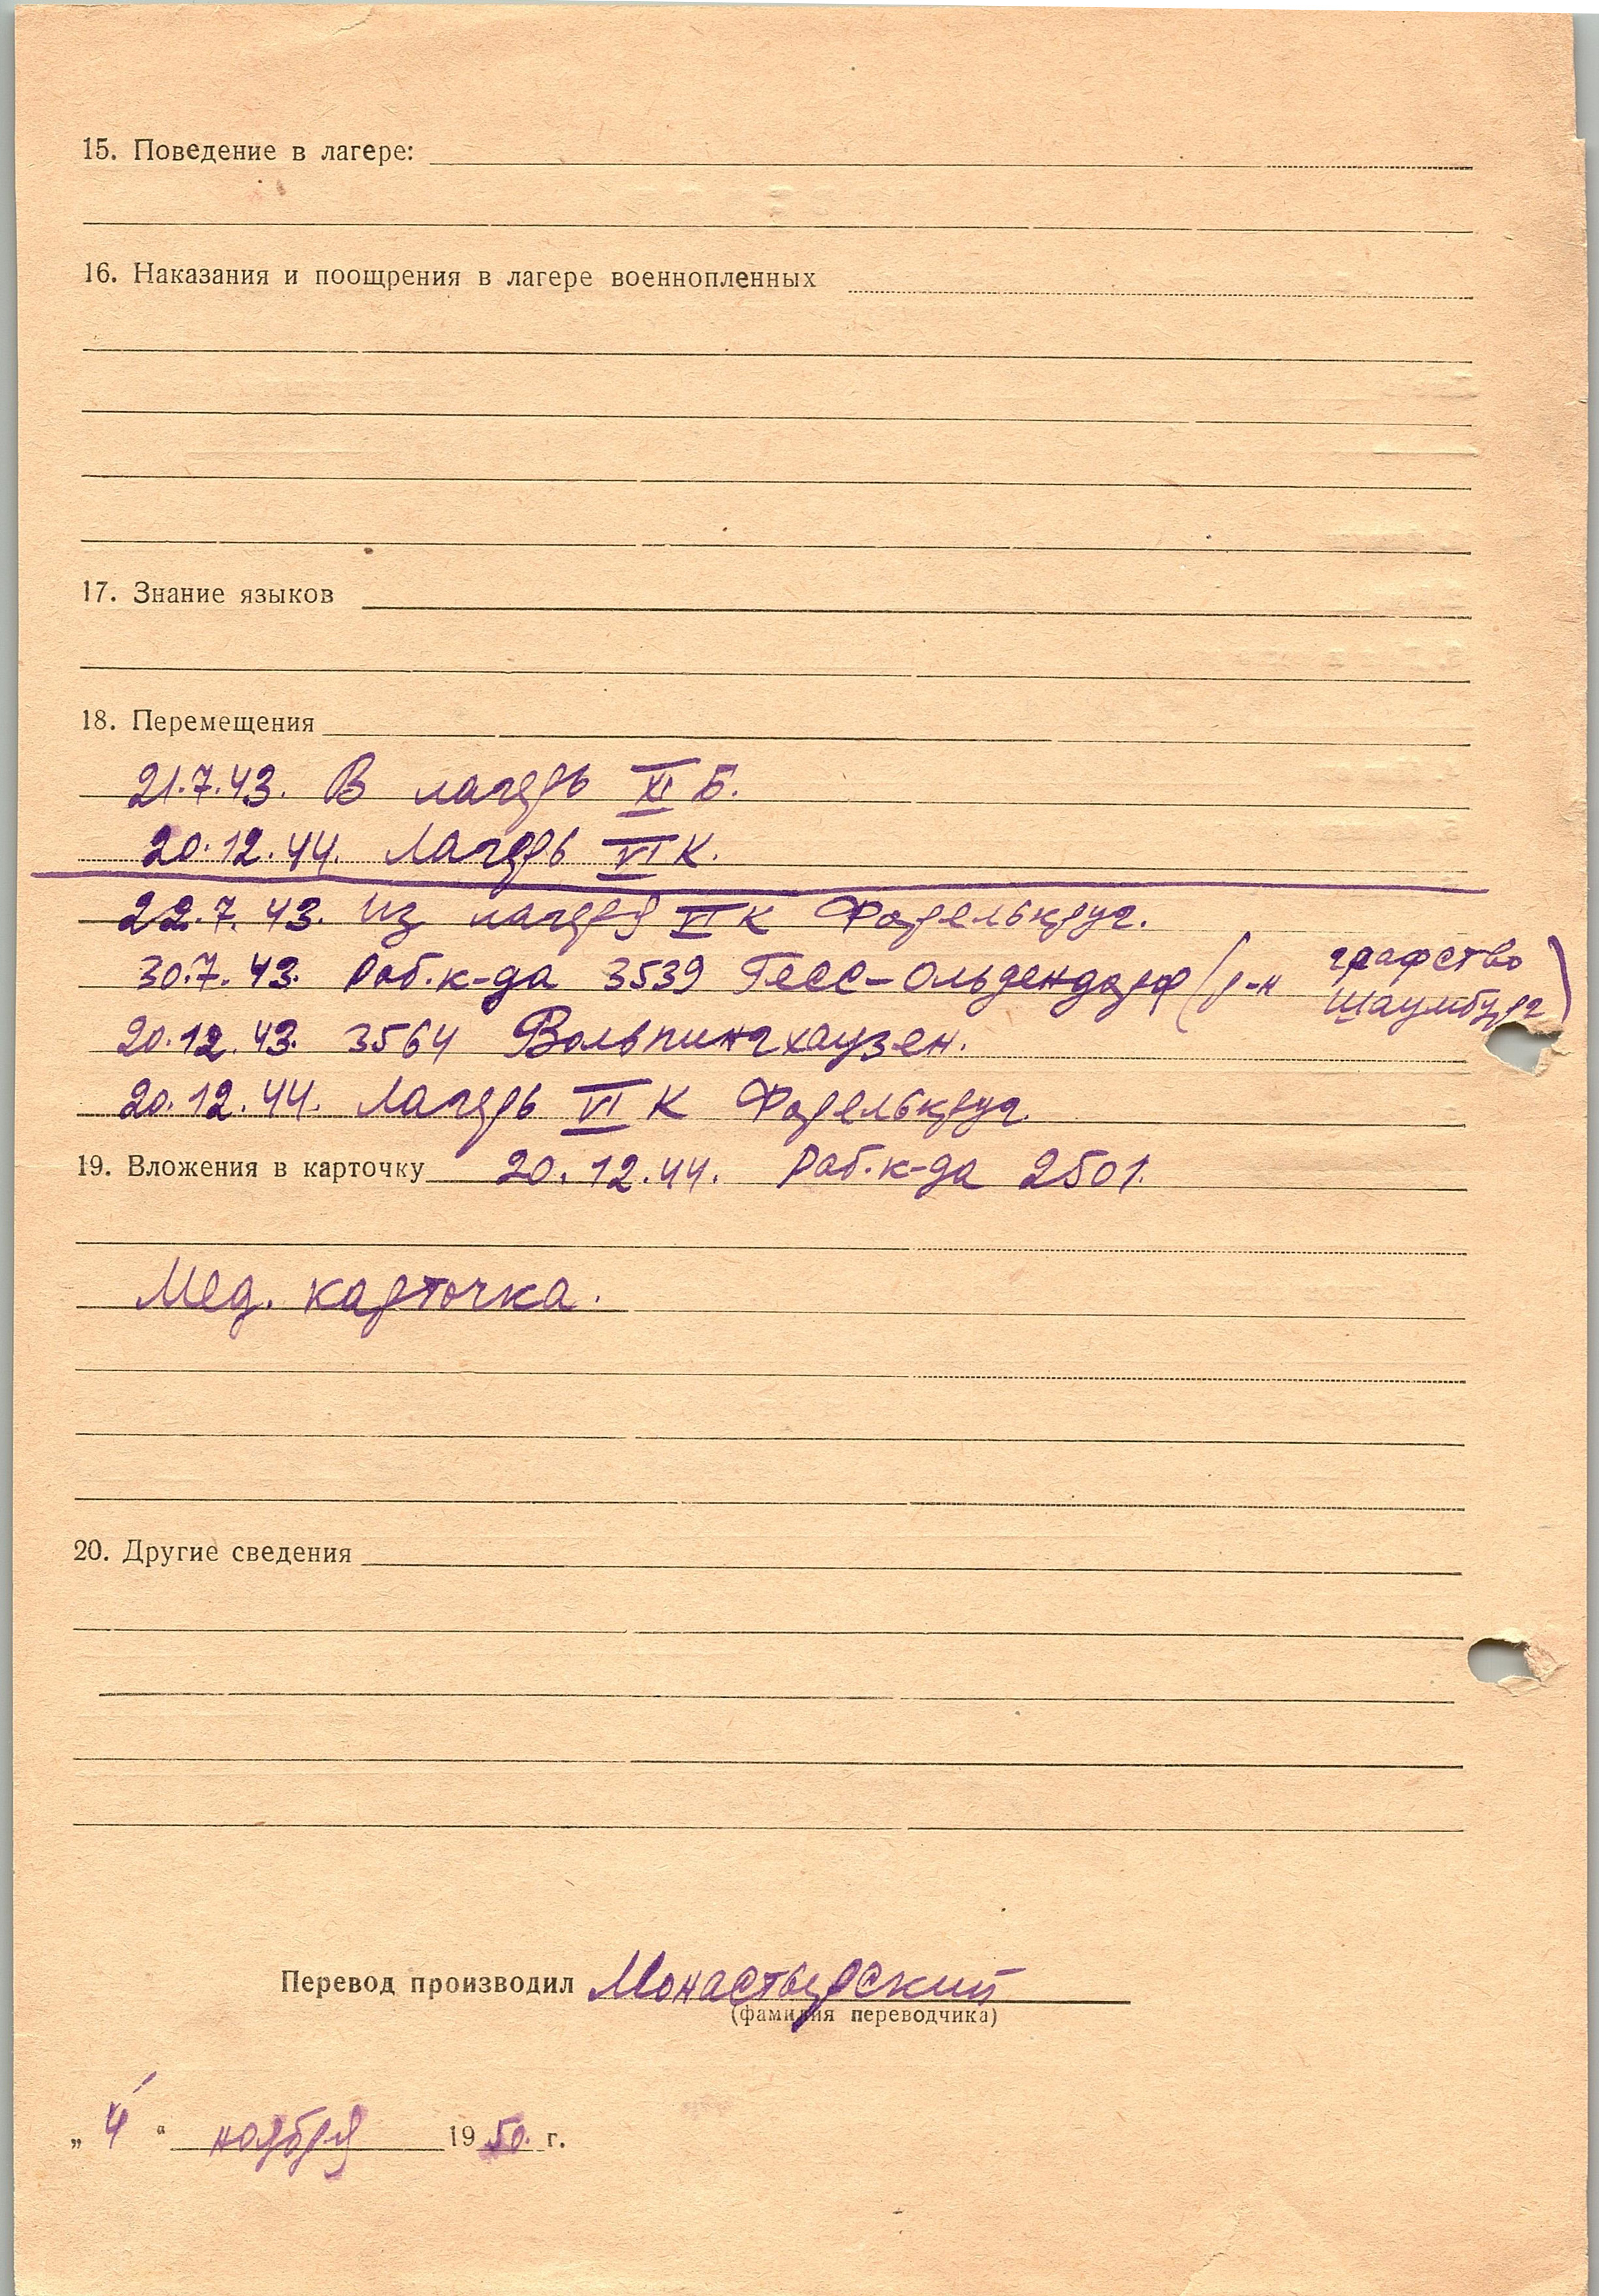 15. Поведение в лагере:
16. Наказания и поощрения в лагере военнопленных
17. Знание языков
18. Перемещения
21.7.43. В лагерь XI Б.
20.12.44. Лагерь VI К.
22.7.43. Из лагеря VI К Форелькруг.
30.7.43. Раб. к-да 3539 Гесс-Ольдендорф (р-н графство Шаумбург)
20.12.43. 3564 Вольпингхаузен.
20.12.44. Лагерь VI К Форелькруг
19. Вложения в карточку 20.12.44. Раб. к-да 2501.
Мед. карточка.
20. Другие сведения
Перевод производил Монастырский
(фамилия переводчика)
„4“ ноября 1950. г.